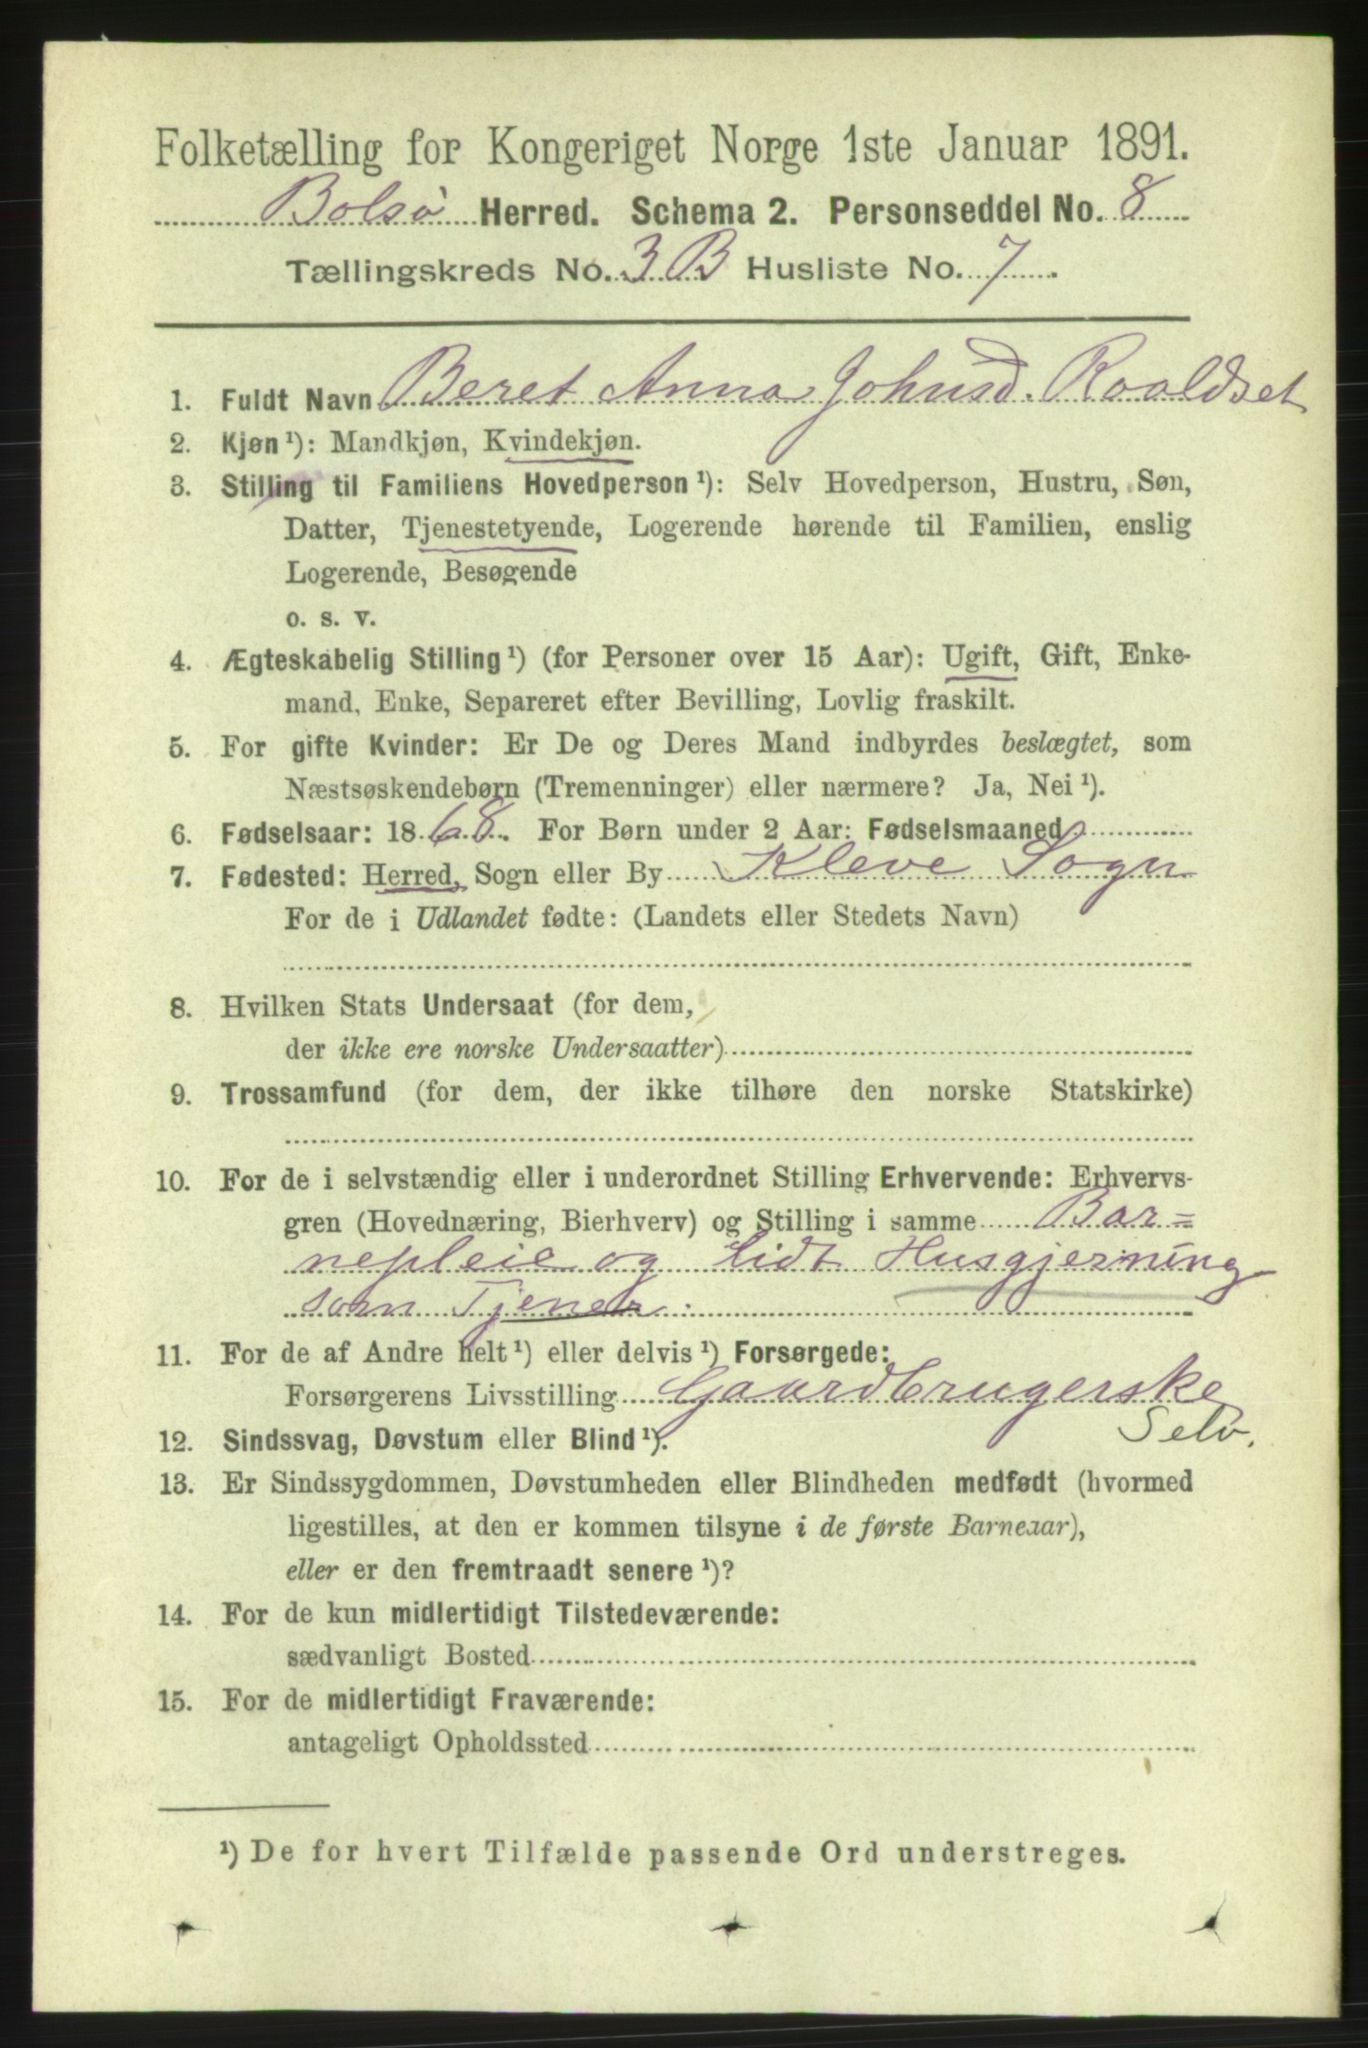 Folketælling for Kongeriget Norge 1ste Januar 1891.
Bolsø Herred. Schema 2. Personseddel No. 8
Tællingskreds No. 3 B Husliste No. 7
1. Fuldt Navn Beret Anna Johnsd. Roaldset
2. Kjøn ¹): Mandkjøn, Kvindekjøn.
3. Stilling til Familiens Hovedperson ¹): Selv Hovedperson, Hustru, Søn,
Datter, Tjenestetyende, Logerende hørende til Familien, enslig
Logerende, Besøgende
o. s. v.
4. Ægteskabelig Stilling ¹) (for Personer over 15 Aar): Ugift, Gift, Enke-
mand, Enke, Separeret efter Bevilling, Lovlig fraskilt.
5. For gifte Kvinder: Er De og Deres Mand indbyrdes beslægtet, som
Næstsøskendebørn (Tremenninger) eller nærmere? Ja, Nei ¹).
6. Fødselsaar: 1868. For Børn under 2 Aar: Fødselsmaaned
7. Fødested: Herred, Sogn eller By Kleve Sogn
For de i Udlandet fødte: (Landets eller Stedets Navn)
8. Hvilken Stats Undersaat (for dem,
der ikke ere norske Undersaatter)
9. Trossamfund (for dem, der ikke tilhøre den norske Statskirke)
10. For de i selvstændig eller i underordnet Stilling Erhvervende: Erhvervs-
gren (Hovednæring, Bierhverv) og Stilling i samme Bar=
nepleie og lidt Husgjerning
som Tjener.
11. For de af Andre helt ¹) eller delvis ¹) Forsørgede:
Forsørgerens Livsstilling Gaardbrugerske
Selv.
12. Sindssvag, Døvstum eller Blind ¹).
13. Er Sindssygdommen, Døvstumheden eller Blindheden medfødt (hvormed
ligestilles, at den er kommen tilsyne i de første Barneaar),
eller er den fremtraadt senere ¹)?
14. For de kun midlertidigt Tilstedeværende:
sædvanligt Bosted
15. For de midlertidigt Fraværende:
antageligt Opholdssted
¹) De for hvert Tilfælde passende Ord understreges.